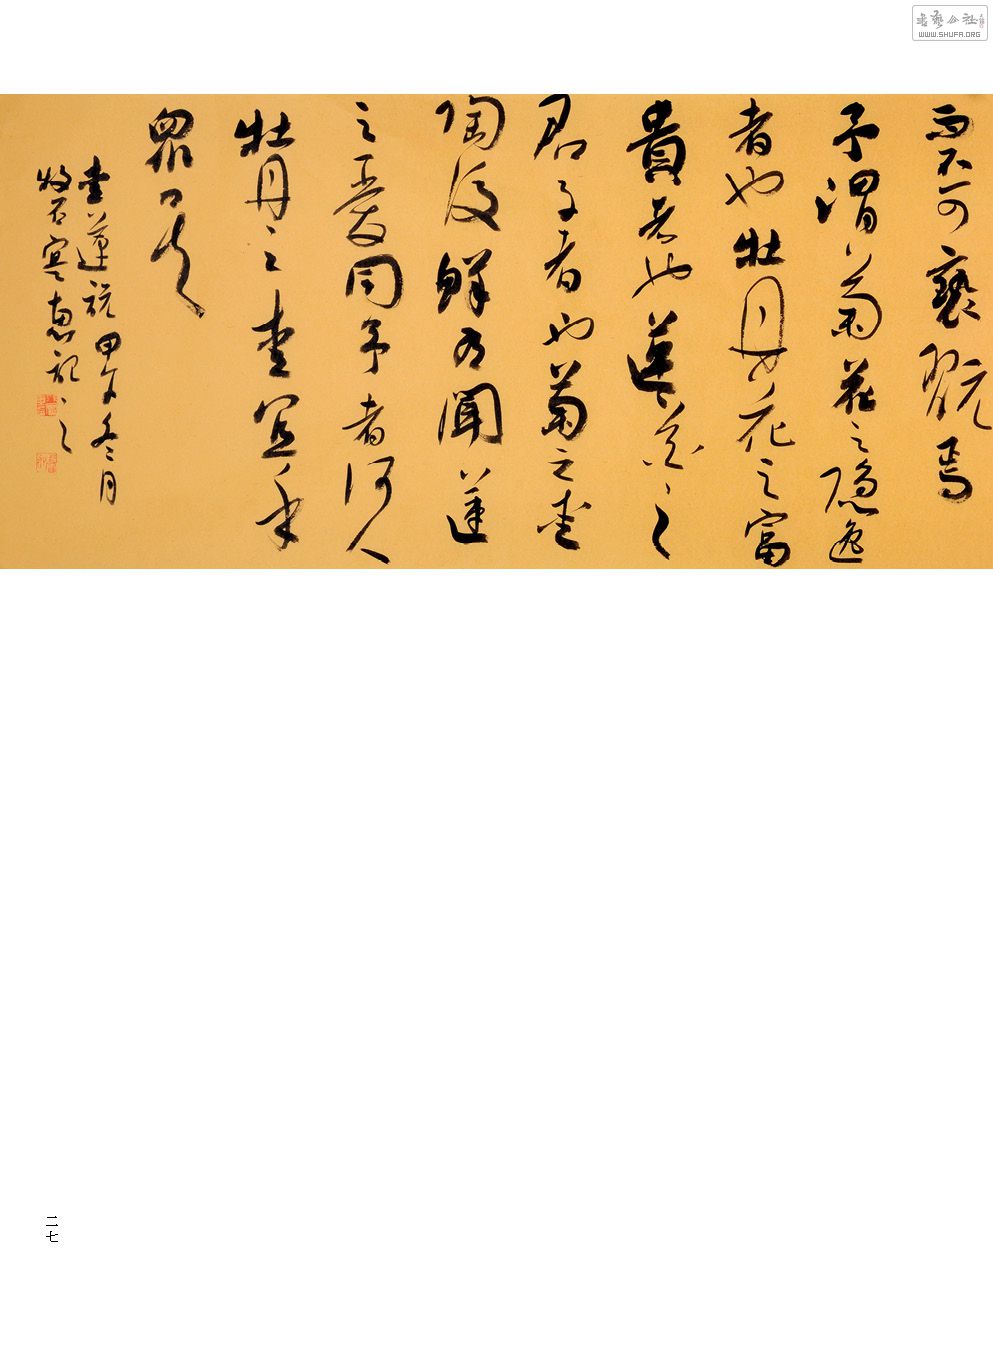 書藝公社
WWW.SHUFA.ORG
而不可褻翫焉
予謂菊花之隱逸
者也牡丹花之富
貴者也蓮花之
君子者也菊之愛
陶後鮮有聞蓮
之愛同予者何人
牡丹之愛宜乎
眾矣
愛蓮說甲午冬月
牧石寒惠記之
二七